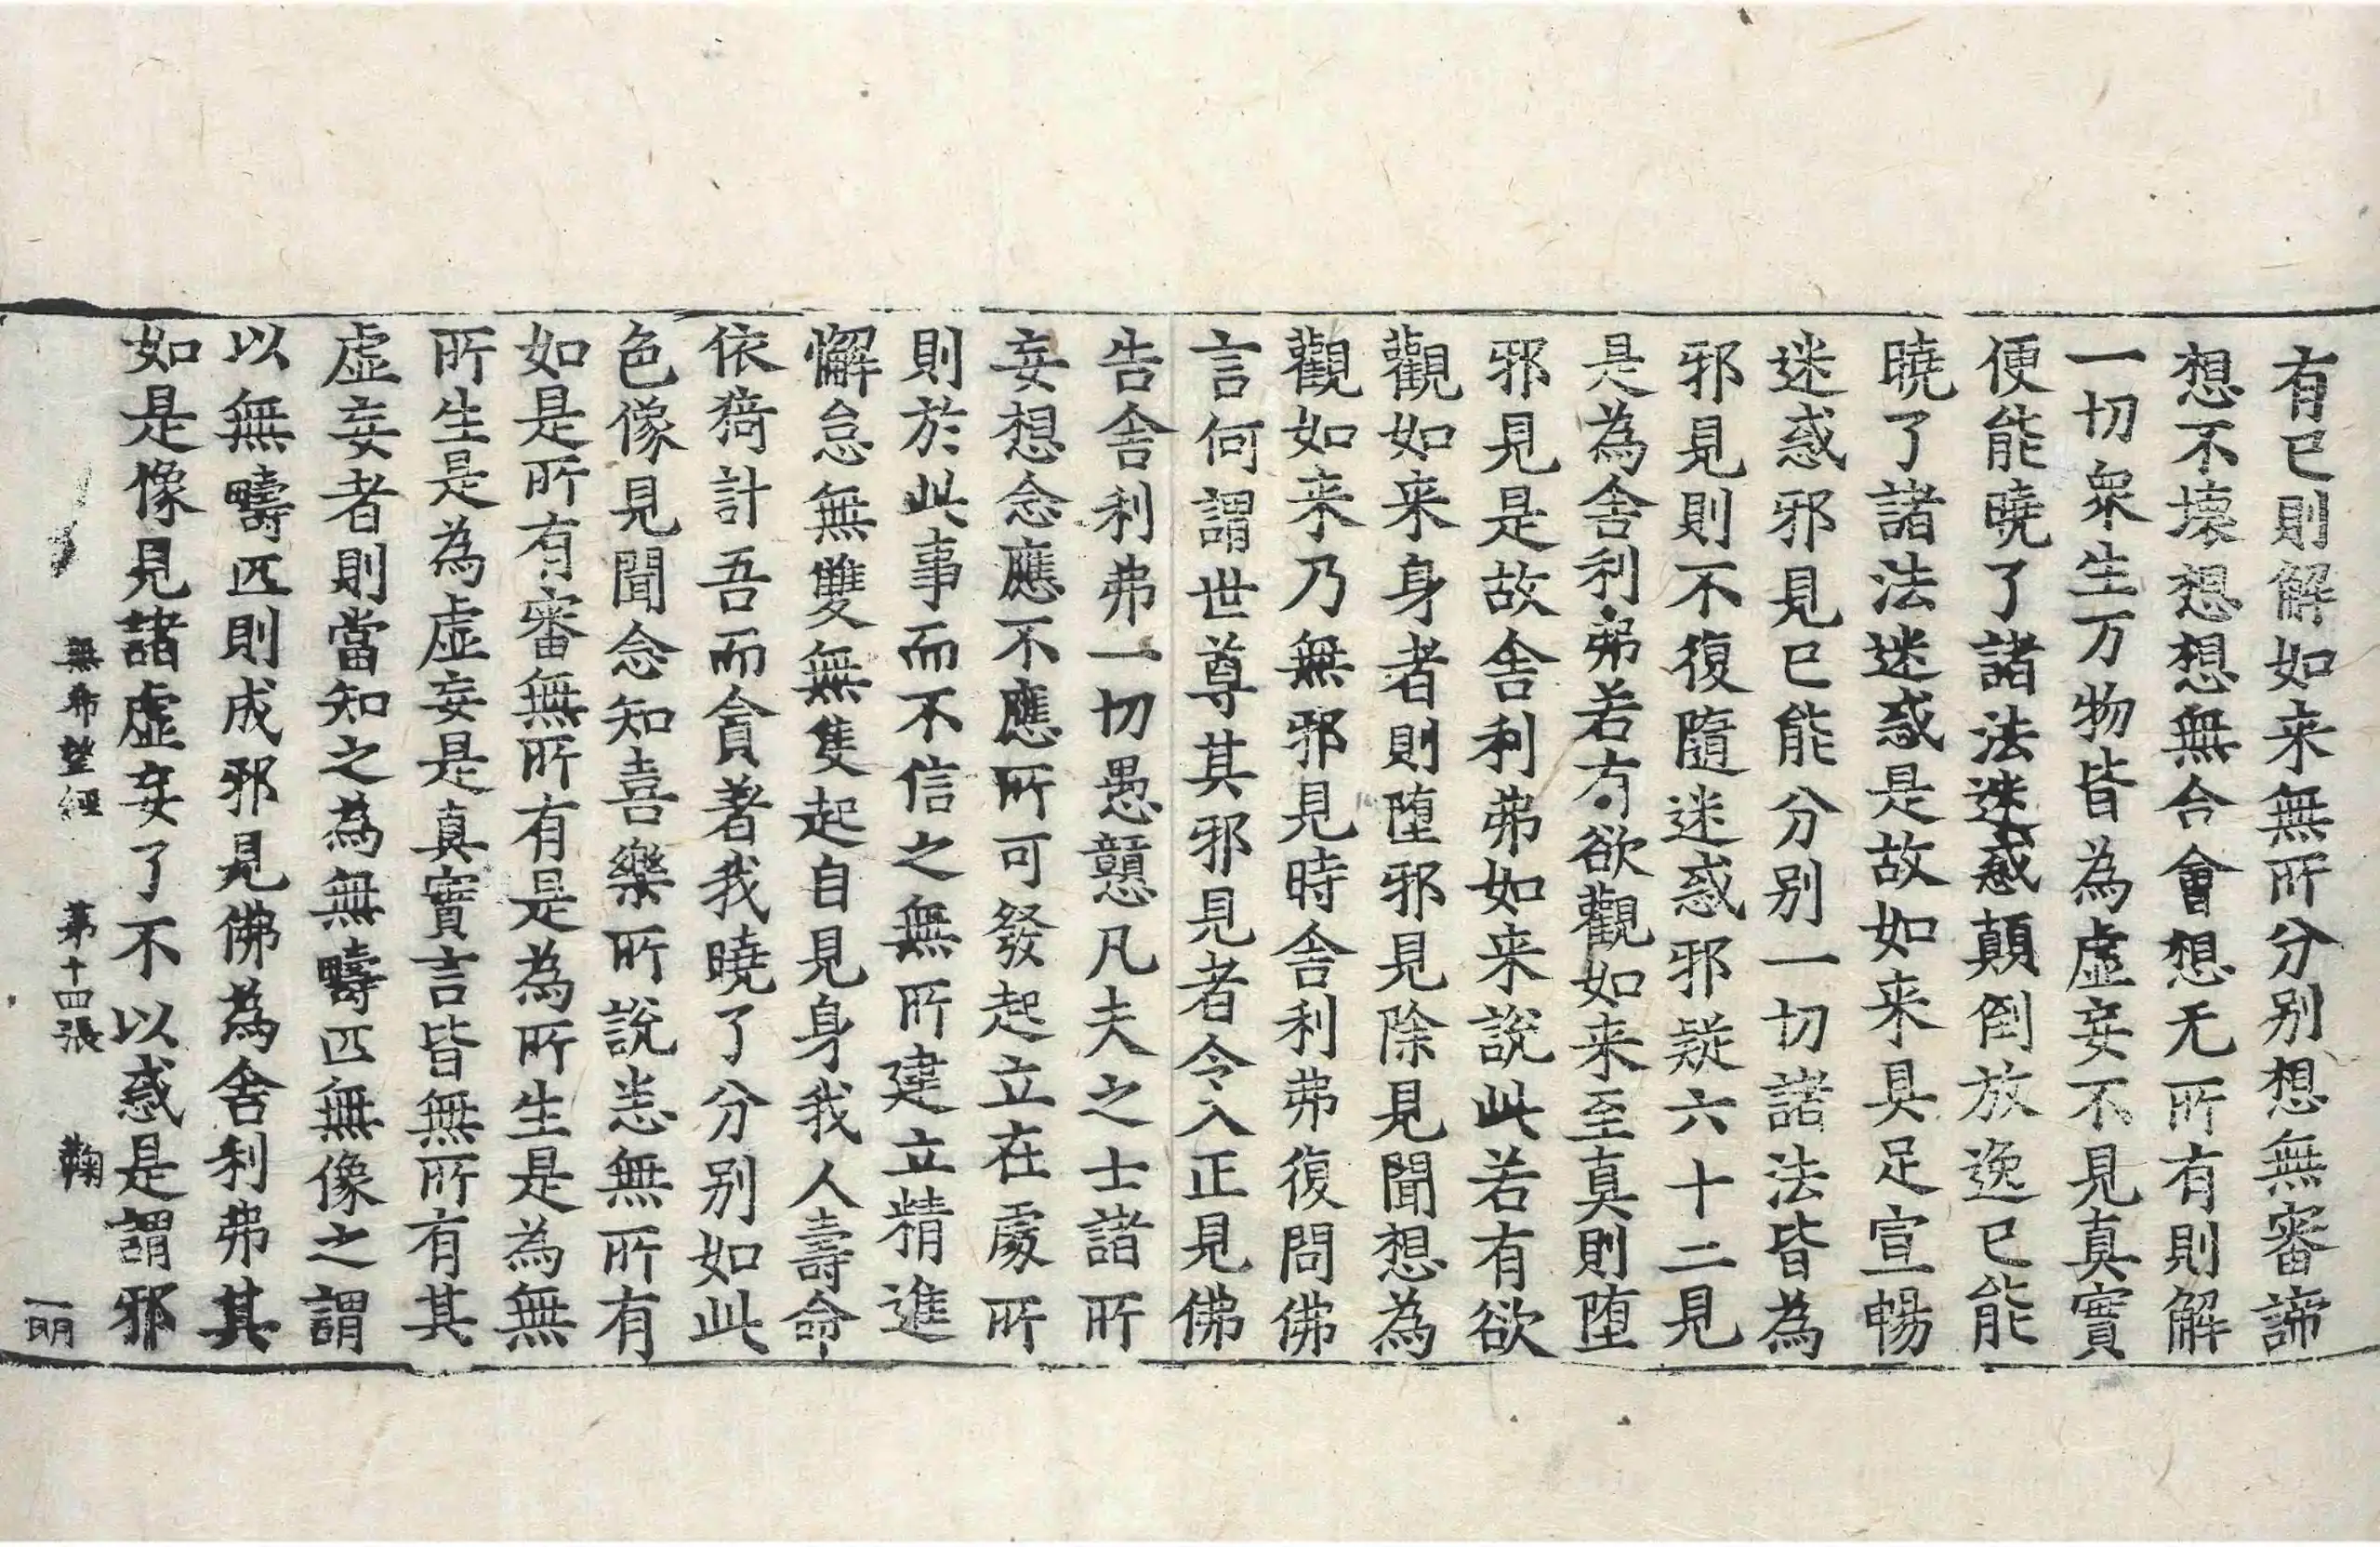 有已則解如来無所分别想無審諦
想不壊想想無合會想无所有則解
一切衆生万物皆為虚妄不見真實
便能曉了諸法迷惑顛倒放逸已能
曉了諸法迷惑是故如来具足宣暢
迷惑邪見已能分别一切諸法皆為
邪見則不復隨迷惑邪疑六十二見
是為舎利弗若有欲觀如来至真則堕
邪見是故舎利弗如来說此若有欲
觀如来身者則堕邪見除見聞想為
觀如来乃無邪見時舎利弗復問佛
言何謂世尊其邪見者令入正見佛
告舎利弗一切愚戇凡夫之士諸所
妄想念應不應所可發起立在處所
則於此事而不信之無所建立精進
懈怠無雙無隻起自見身我人壽命
依猗計吾而貪著我曉了分别如此
色像見聞念知喜樂所說恙無所有
如是所有審無所有是為所生是為無
所生是為虚妄是真實言皆無所有其
虚妄者則當知之為無疇匹無像之謂
以無疇匹則成邪見佛為舎利弗其
如是像見諸虚妄了不以惑是謂邪
無希望經 第十四張 鞠 一明